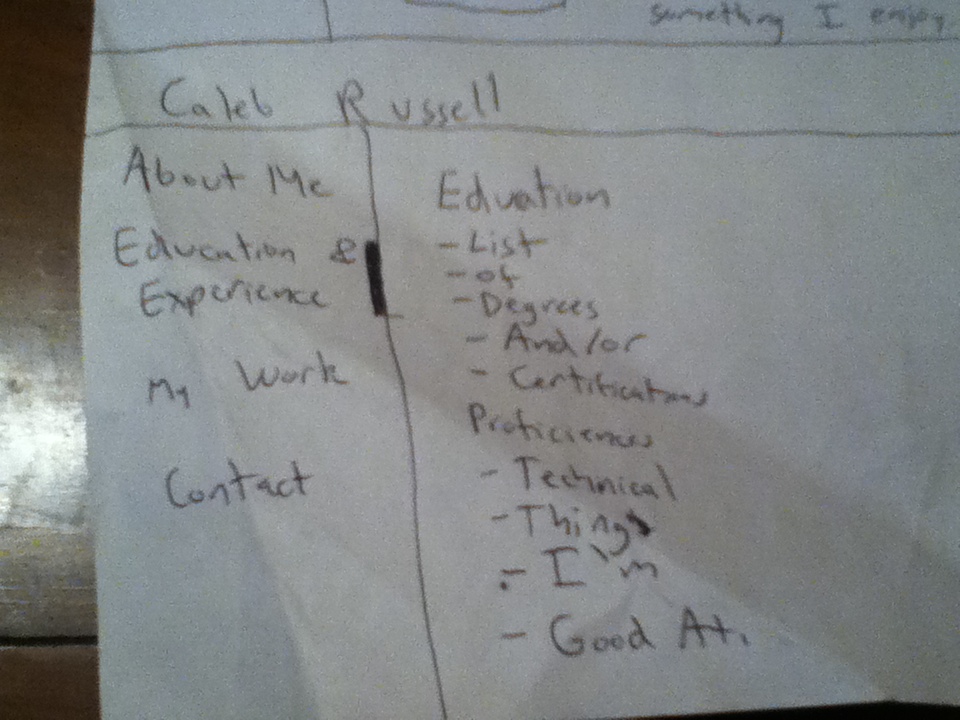 something I enjoy
Caleb Russell
About Me
Education &
Experience
My Work
Contact
Eduation
- List
- of
- Degrees
- And/or
- Certifications
Proficiences
- Technical
- Things
- I'm
- Good At.